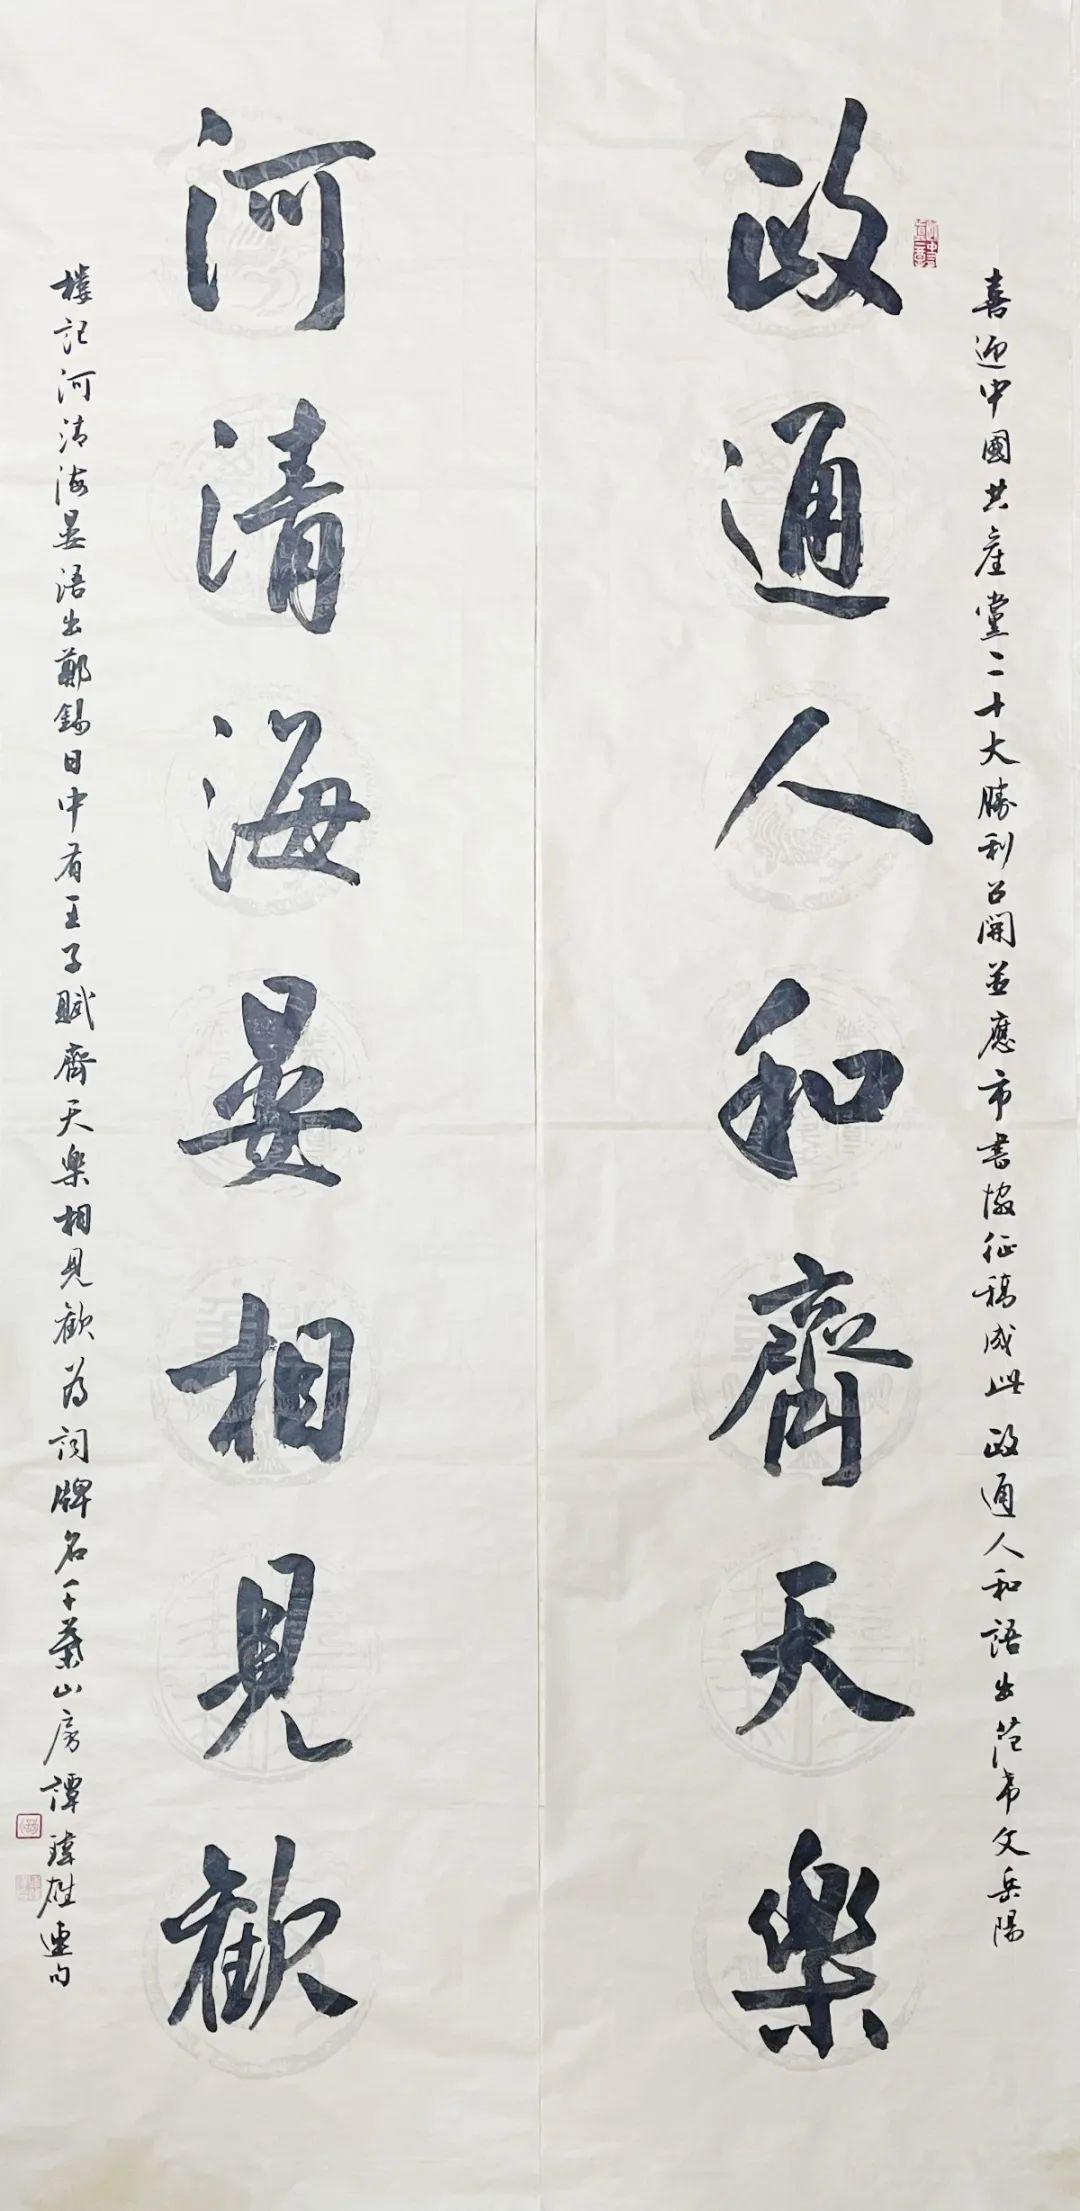 喜迎中國共產黨二十大勝利召開並應市書協征稿成此政通人和語出范希文岳陽
政通人和齊天樂
河清海晏相見歡
樓記河清海晏語出鄭錫日中有王子賦齊天樂相見歡為詞牌名千葉山房譚瑋雄連句